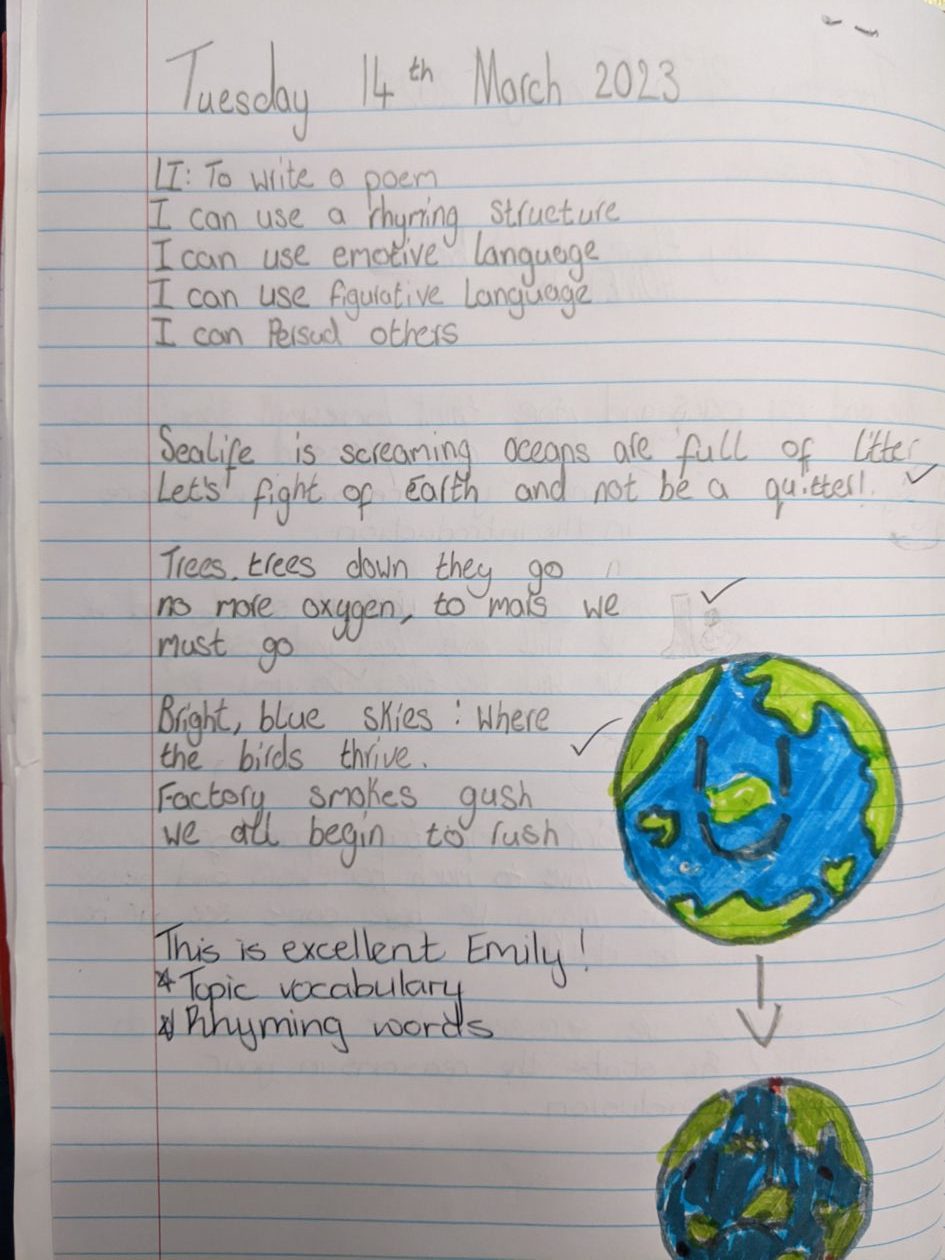 Tuesday 14th March 2023
LI: To write a poem
I can use a rhyming structure
I can use emotive language
I can use figurative language
I can Persud others
Sealife is screaming oceans are full of litter
Let's fight of earth and not be a quitter!.
Trees, trees down they go
no more oxygen, to mars we
must go
Bright, blue skies : Where
the birds thrive.
Factory smokes gush
we all begin to rush
This is excellent Emily!
* Topic vocabulary
* Rhyming words